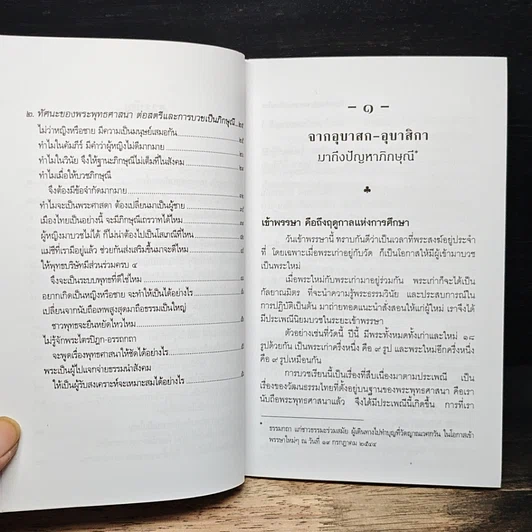 ๒. ทัศนะของพระพุทธศาสนา ต่อสตรีและการบวชเป็นภิกษุณี
ไม่ว่าหญิงหรือชาย มีความเป็นมนุษย์เสมอกัน
ทำไมในคัมภีร์ มีคำว่าผู้หญิงไม่ดีมากมาย
ทำไมในวินัย จึงให้ฐานะภิกษุณีไม่เต็มที่ในสังคม
ทำไมเมื่อให้บวชภิกษุณี
จึงต้องมีข้อจำกัดมากมาย
ทำไมจะเป็นพระศาสดา ต้องเปลี่ยนมาเป็นผู้ชาย
เมืองไทยเป็นอย่างนี้ จะมีภิกษุณีเถรวาทได้ไหม
ผู้หญิงมาบวชไม่ได้ ก็ไม่น่าต้องไปเป็นโสเภณีที่ไหน
แม่ชีที่เรามีอยู่แล้ว ช่วยกันส่งเสริมขึ้นมาจะดีไหม
ให้พุทธบริษัทมีส่วนร่วมครบ ๔
จึงจะเป็นระบบพุทธที่ดีใช่ไหม
อยากเกิดเป็นหญิงหรือชาย จะทำให้เป็นได้อย่างไร
เปลี่ยนจากนับถือเทพสูงสุดมาถือธรรมเป็นใหญ่
ชาวพุทธจะยืนหยัดไหวไหม
ไม่รู้จักพระไตรปิฎก-อรรถกถา
จะพูดเรื่องพุทธศาสนาให้ชัดได้อย่างไร
พระเป็นผู้ไปแจกจ่ายธรรมนำสังคม
ให้เป็นผู้รับสงเคราะห์จะเหมาะสมได้อย่างไร
– ๑ –
จากอุบาสก-อุบาสิกา
มาถึงปัญหาภิกษุณี*
♣
เข้าพรรษา คือถึงฤดูกาลแห่งการศึกษา
วันเข้าพรรษานี้ ทราบกันดีว่าเป็นเวลาที่พระสงฆ์อยู่ประจำ
ที่ โดยเฉพาะเมื่อพระเก่าอยู่กับวัด ก็เป็นโอกาสให้มีผู้เข้ามาบวช
เป็นพระใหม่
เมื่อพระใหม่กับพระเก่ามาอยู่ร่วมกัน พระเก่าก็จะได้เป็น
กัลยาณมิตร ที่จะนำความรู้พระธรรมวินัย และประสบการณ์ใน
การปฏิบัติเป็นต้น มาถ่ายทอดแนะนำสั่งสอนให้แก่ผู้ใหม่ เราจึงได้
มีประเพณีนิยมบวชในระยะเข้าพรรษา
ตัวอย่างเช่นที่วัดนี้ ปีนี้ มีพระทั้งหมดทั้งเก่าและใหม่ ๑๘
รูปด้วยกัน เป็นพระเก่าครึ่งหนึ่ง คือ ๙ รูป และพระใหม่อีกครึ่งหนึ่ง
คือ ๙ รูปเหมือนกัน
การบวชเรียนนี้เป็นเรื่องที่สืบเนื่องมาตามประเพณี เป็น
เรื่องของวัฒนธรรมไทยที่ตั้งอยู่บนฐานของพระพุทธศาสนา คือเรา
นับถือพระพุทธศาสนาแล้ว จึงได้มีประเพณีนี้เกิดขึ้น การที่เรา
* ธรรมกถา แก่ชาวธรรมร่วมสมัย ผู้เดินทางไปทำบุญที่วัดญาณเวศกวัน ในโอกาสเข้า
พรรษาใหม่ๆ ณ วันที่ ๑๙ กรกฎาคม ๒๕๔๔